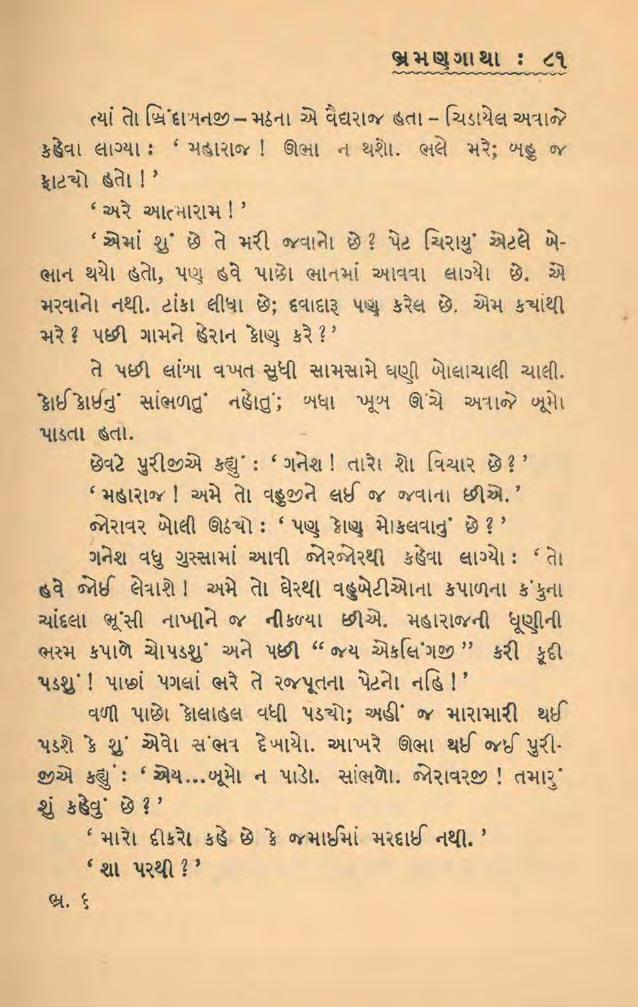 ભ્રમણગાથા : ૮૧
ત્યાં તો બ્રિંદાબનજી – મઠના એ વૈદ્યરાજ હતા – ચિડાયેલ અવાજે
કહેવા લાગ્યા : ‘ મહારાજ ! ઊભા ન થશો. ભલે મરે; બહુ જ
ફાટયો હતો ! ’
‘ અરે આત્મારામ ! ’
‘ એમાં શું છે તે મરી જવાનો છે ? પેટ ચિરાયું એટલે બે-
ભાન થયો હતો, પણ હવે પાછો ભાનમાં આવવા લાગ્યો છે. એ
મરવાનો નથી. ટાંકા લીધા છે; દવાદારૂ પણ કરેલ છે. એમ કયાંથી
મરે ? પછી ગામને હેરાન કોણ કરે ? ’
તે પછી લાંબા વખત સુધી સામસામે ઘણી બોલાચાલી ચાલી.
કોઈ કોઈનું સાંભળતું નહોતું; બધા ખૂબ ઊંચે અવાજે બૂમો
પાડતા હતા.
છેવટે પુરીજીએ કહ્યું : ‘ ગનેશ ! તારો શો વિચાર છે ? ’
‘ મહારાજ ! અમે તો વહુજીને લઈ જ જવાના છીએ. ’
જોરાવર બોલી ઊઠયો : ‘ પણ કોણ મોકલવાનું છે ? ’
ગનેશ વધુ ગુસ્સામાં આવી જોરજોરથી કહેવા લાગ્યો : ‘ તો
હવે જોઈ લેવાશે ! અમે તો ઘેરથી વહુબેટીઓના કપાળના કંકુના
ચાંદલા ભૂંસી નાખીને જ નીકળ્યા છીએ. મહારાજની ધૂણીની
ભસ્મ કપાળે ચોપડશું અને પછી “ જય એકલિંગજી ” કરી કૂદી
પડશું ! પાછાં પગલાં ભરે તે રજપૂતના પેટનો નહિ ! ’
વળી પાછો કોલાહલ વધી પડયો; અહીં જ મારામારી થઈ
પડશે કે શું એવો સંભવ દેખાયો. આખરે ઊભા થઈ જઈ પુરી-
જીએ કહ્યું : ‘ એય...બૂમો ન પાડો. સાંભળો. જોરાવરજી ! તમારું
શું કહેવું છે ? ’
‘ મારો દીકરો કહે છે કે જમાઈમાં મરદાઈ નથી. ’
‘ શા પરથી ? ’
ભ્ર. ૬